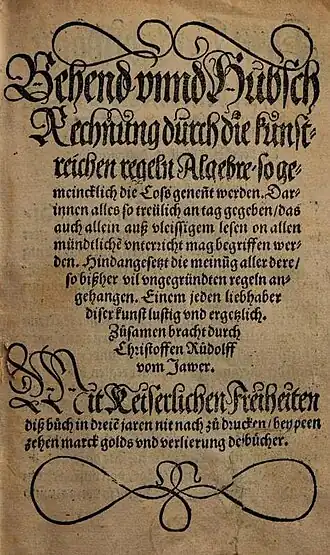 Behend vnnd Hubsch
Rechnung durch die kunst-
reichen regeln Algebre/ so ge-
meincklich die Coss geneñt werden. Dar-
innen alles so treülich an tag gegeben/ das
auch allein auß vleissigem lesen on allen
mündtlichē vnterricht mag begriffen wer-
den. Hindangesetzt die meinũg aller dere/
so bißher vil vngegründten regeln an-
gehangen. Einem jeden liebhaber
diser kunst lustig vnd ergetzlich.
Zůsamen bracht durch
Christoffen Růdolff
vom Jawer.
Mit Keiserlichen Freiheiten
diß bůch in dreiē jaren nit nach zů drucken/ bey peen
zehen marck golds vnd verlierung d' bücher.